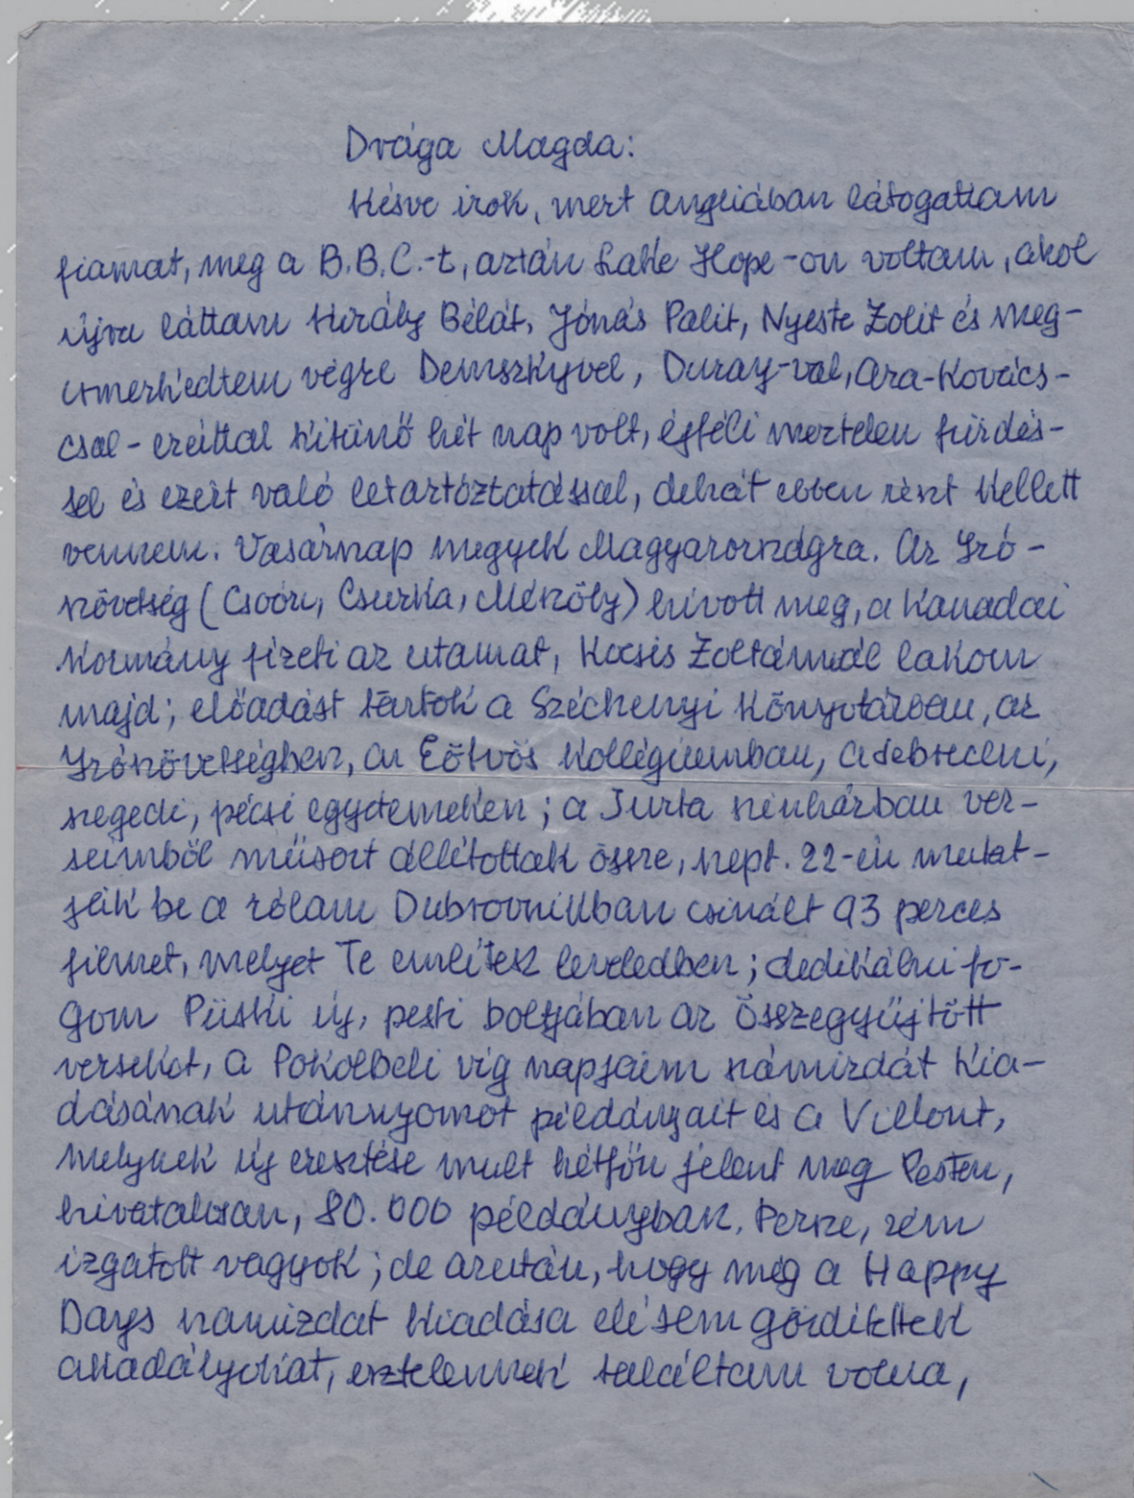 Drága Magda:
Késve irok, mert Angliában látogattam
fiamat, meg a B.B.C.-t, aztán Lake Hope-on voltam, ahol
újra láttam Király Bélát, Jónás Palit, Nyeste Zolit és meg-
ismerkedtem végre Demszkyvel, Duray-val, Ara-Kovács-
csal - ezáltal kitünő hét nap volt, éjféli meztelen fürdés-
sel és ezért való letartóztatással, dehát ebben részt kellett
vennem. Vasárnap megyek Magyarországra. Az Iró-
szövetség (Csoóri, Csurka, Mészöly) hivott meg, a Kanadai
Kormány fizeti az utamat, Kocsis Zoltánnál lakom
majd; előadást tartok a Széchenyi Könyvtárban, az
Irószövetségben, az Eötvös Kollégiumban, a debreceni,
szegedi, pécsi egyetemeken; a Jurta szinházban ver-
seimből müsort állitottak össze, szept. 22-én mutat-
ják be a rólam Dubrovnikban csinált 93 perces
filmet, melyet Te emlitesz leveledben; dedikálni fo-
gom Püski új, pesti boltjában az Összegyüjtött
verseket, a Pokolbeli víg napjaim számizdát kia-
dásának utánnyomot példányait és a Villont,
melynek új eresztése mult hétfőn jelent meg Pesten,
hivatalosan, 80.000 példányban. Persze, rém
izgatott vagyok; de azután, hogy még a Happy
Days szamizdat kiadása elé sem gördítettek
akadályokat, esztelennek találtam volna,